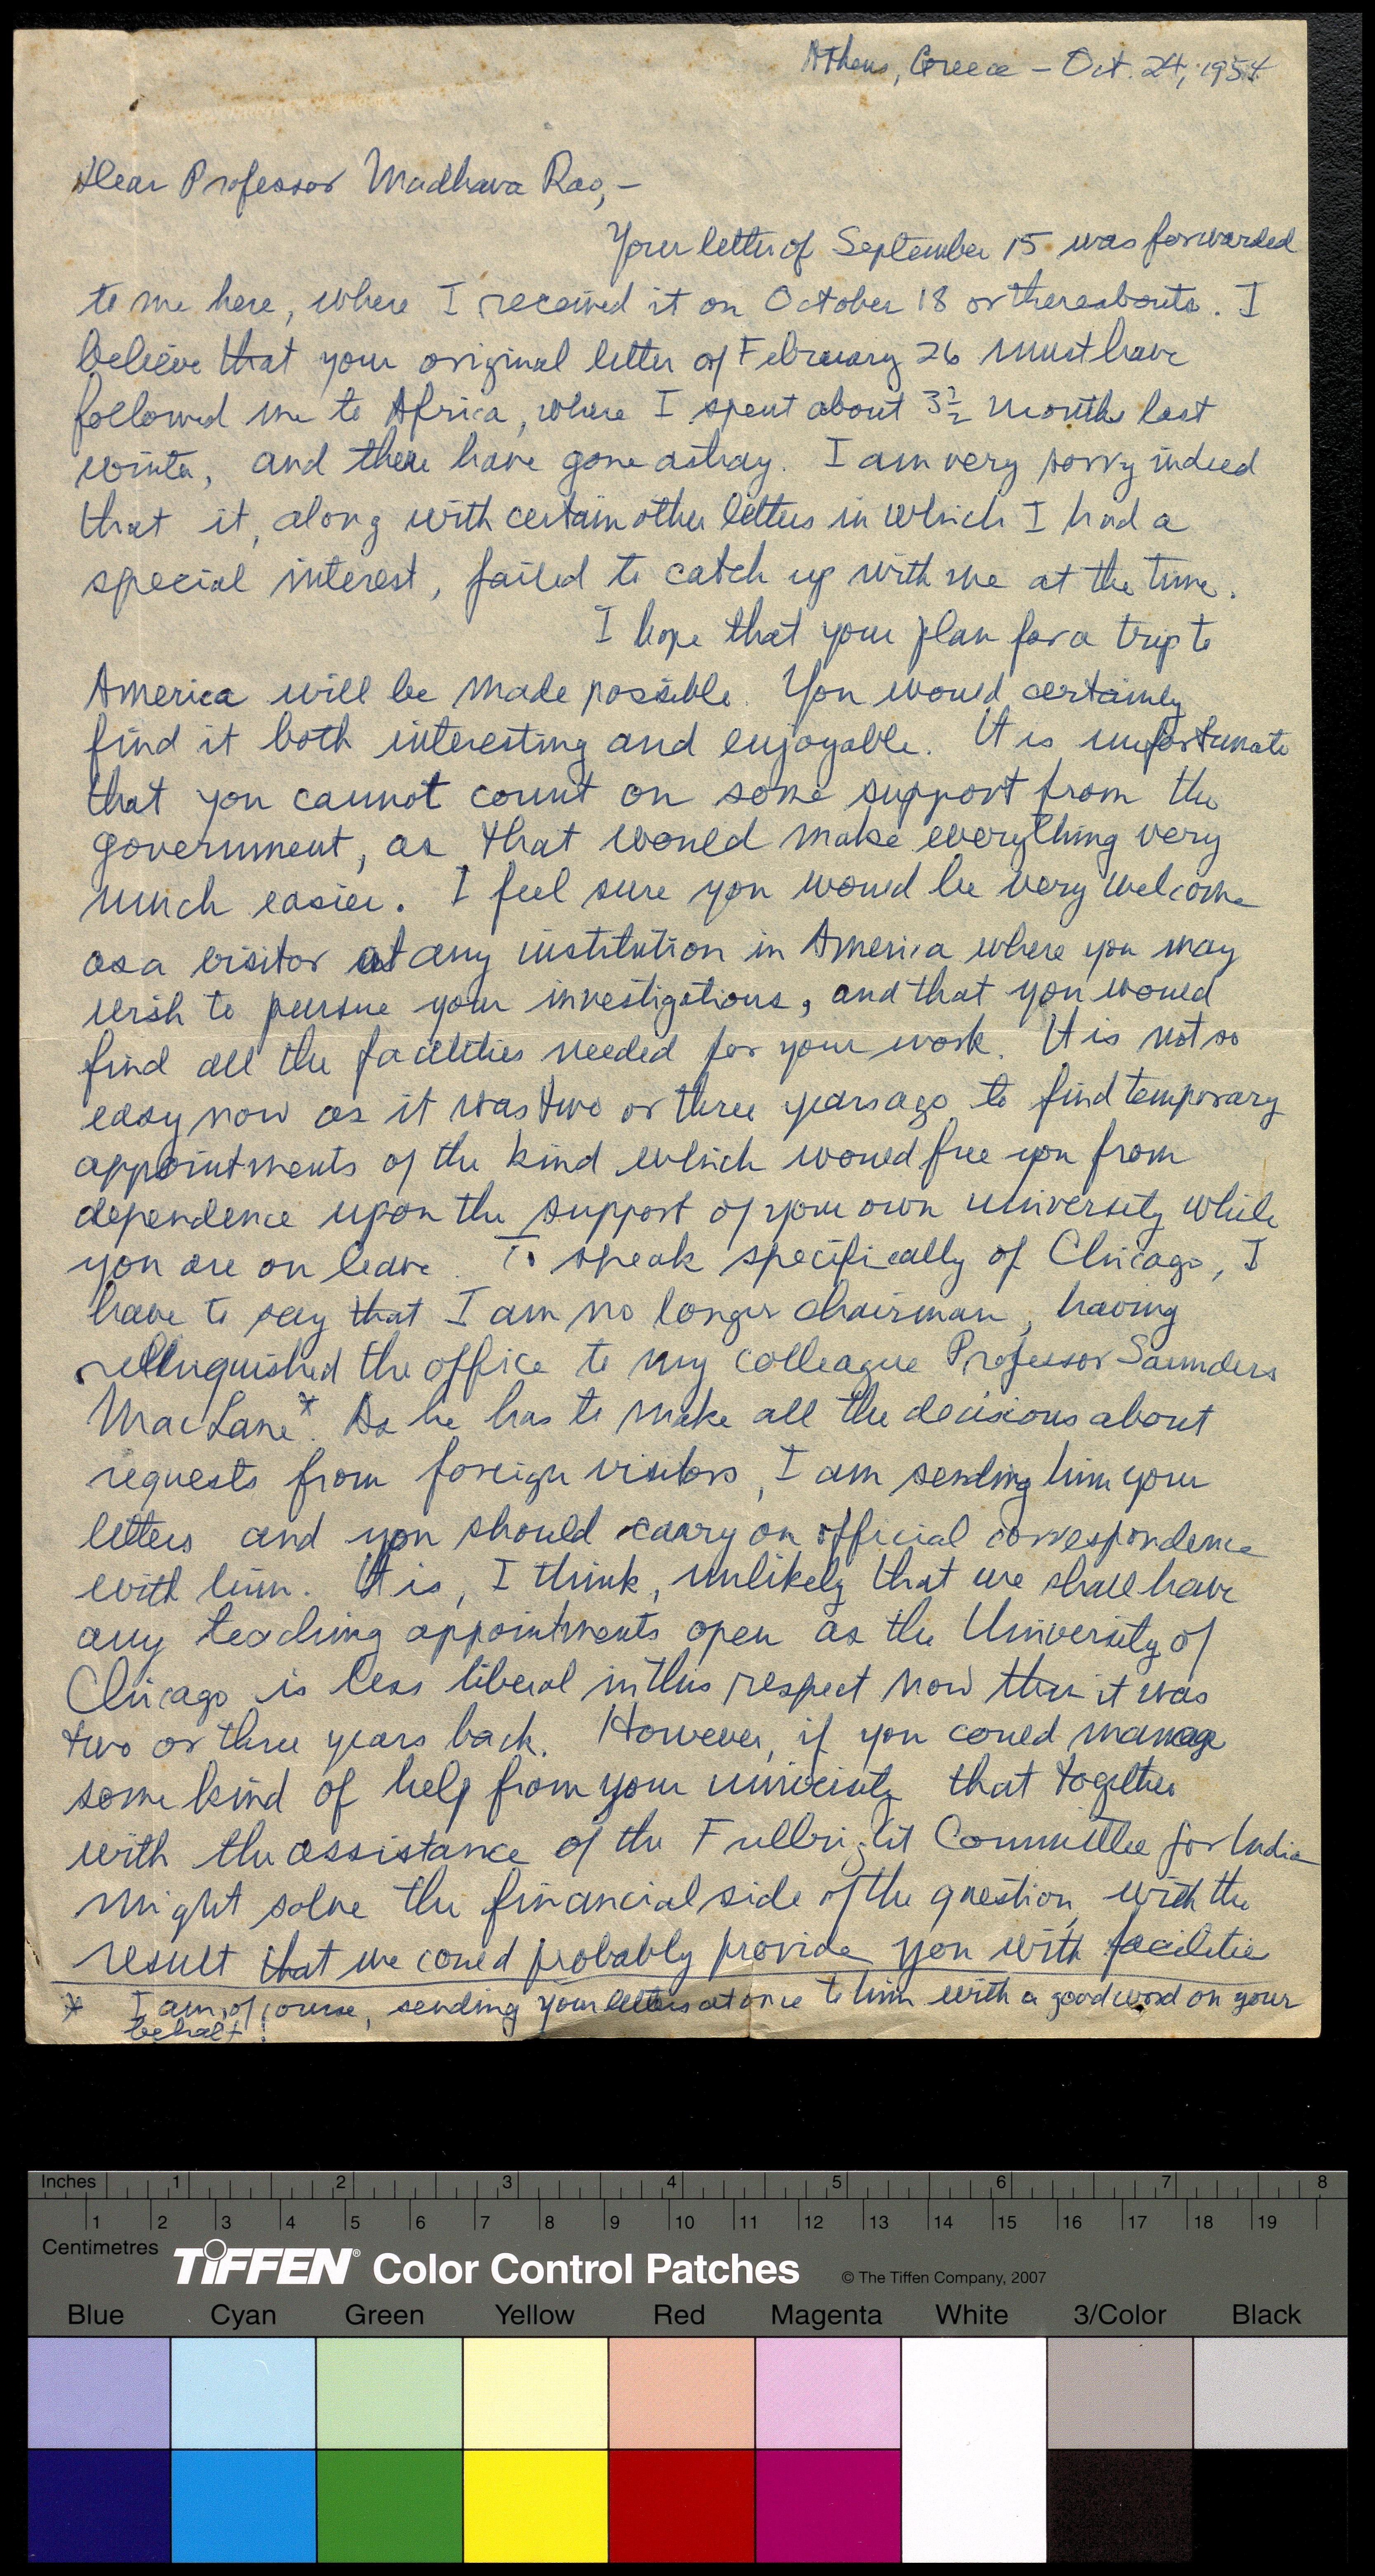 Athens, Greece – Oct. 24, 1954
Dear Professor Madhava Rao, –
Your letter of September 15 was forwarded
to me here, where I received it on October 18 or thereabouts. I
believe that your original letter of February 26 must have
followed me to Africa, where I spent about 3½ months last
winter, and there have gone astray. I am very sorry indeed
that it, along with certain other letters in which I had a
special interest, failed to catch up with me at the time.
I hope that your plan for a trip to
America will be made possible. You would certainly
find it both interesting and enjoyable. It is unfortunate
that you cannot count on some support from the
government, as that would make everything very
much easier. I feel sure you would be very welcome
as a visitor at any institution in America where you may
wish to pursue your investigations, and that you would
find all the facilities needed for your work. It is not so
easy now as it was two or three years ago to find temporary
appointments of the kind which would free you from
dependence upon the support of your own university while
you are on leave. To speak specifically of Chicago, I
have to say that I am no longer chairman, having
relinquished the office to my colleague Professor Saunders
MacLane*. As he has to make all the decisions about
requests from foreign visitors, I am sending him your
letters and you should carry on official correspondence
with him. It is, I think, unlikely that we shall have
any teaching appointments open as the University of
Chicago is less liberal in this respect now than it was
two or three years back. However, if you could manage
some kind of help from your university that together
with the assistance of the Fulbright Committee for India
might solve the financial side of the question, with the
result that we could probably provide you with facilitie
* I am, of course, sending your letters at once to him with a good word on your
behalf!
Inches 1 2 3 4 5 6 7 8
1 2 3 4 5 6 7 8 9 10 11 12 13 14 15 16 17 18 19
Centimetres
TIFFEN® Color Control Patches © The Tiffen Company, 2007
Blue Cyan Green Yellow Red Magenta White 3/Color Black